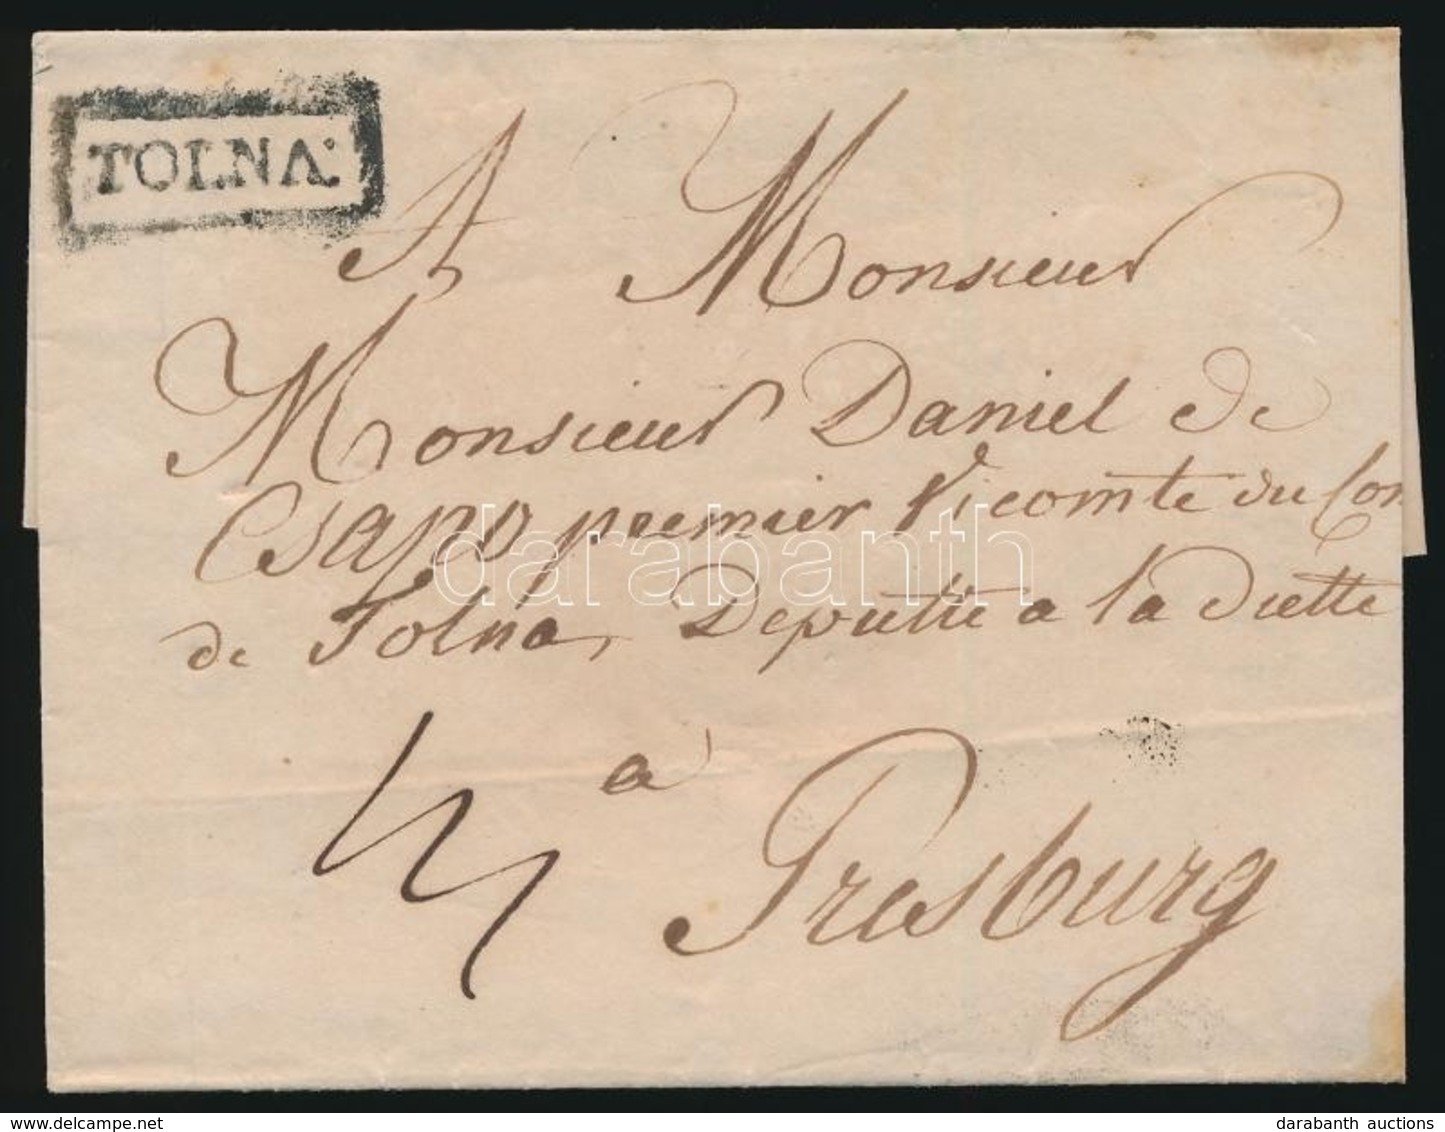 TOLNA:
A Monsieur
Monsieur Daniel de
Csapo premier Vicomte du Com
de Tolna, Deputée a la diette
a
Presburg
darabanth
© darabanth auctions